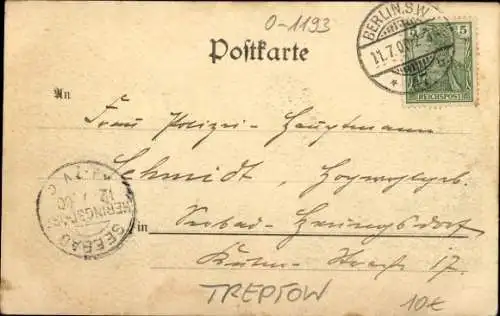 O-1193
BERLIN.S.W.
11.7.00
5
REICHSPOST
Postkarte
An
Frau Polizei-Hauptmann
Schmidt,
SEEBAD
HERINGSDORF
12.7.00
in
Seebad-Heringsdorf
Straße 17.
TREPTOW
10€